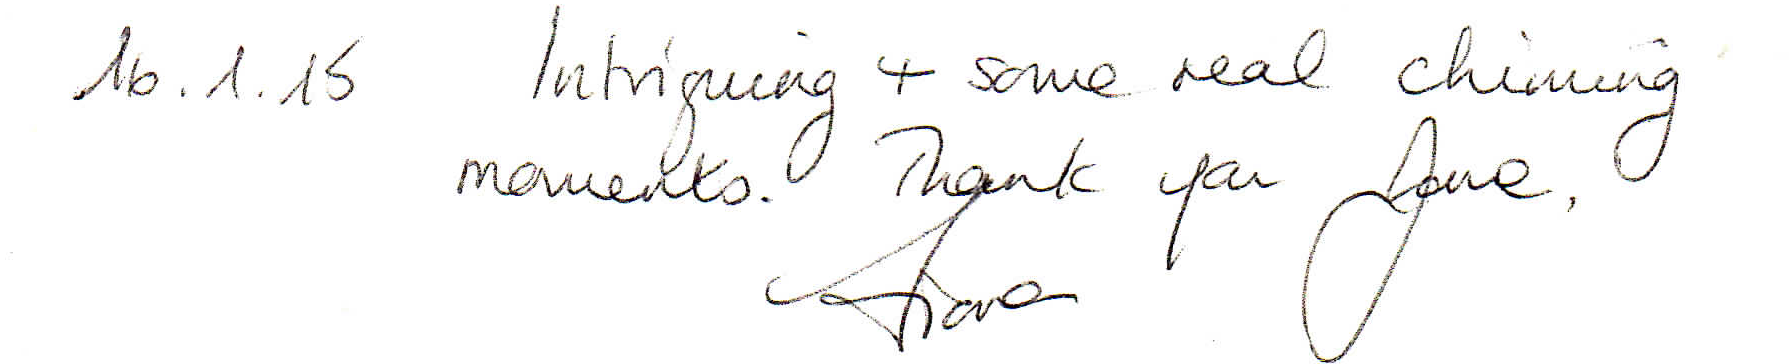 16.1.15 Intriguing + some real chiming
moments. Thank you Jane,